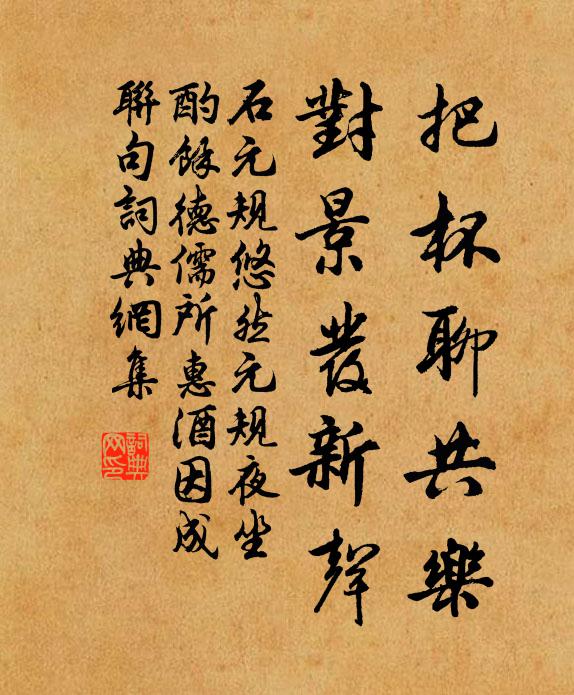 把杯聊共樂
對景發新聲
石元規悠然元規夜坐
酌餘德儒所惠酒因成
聯句詞典網集
詞典网印